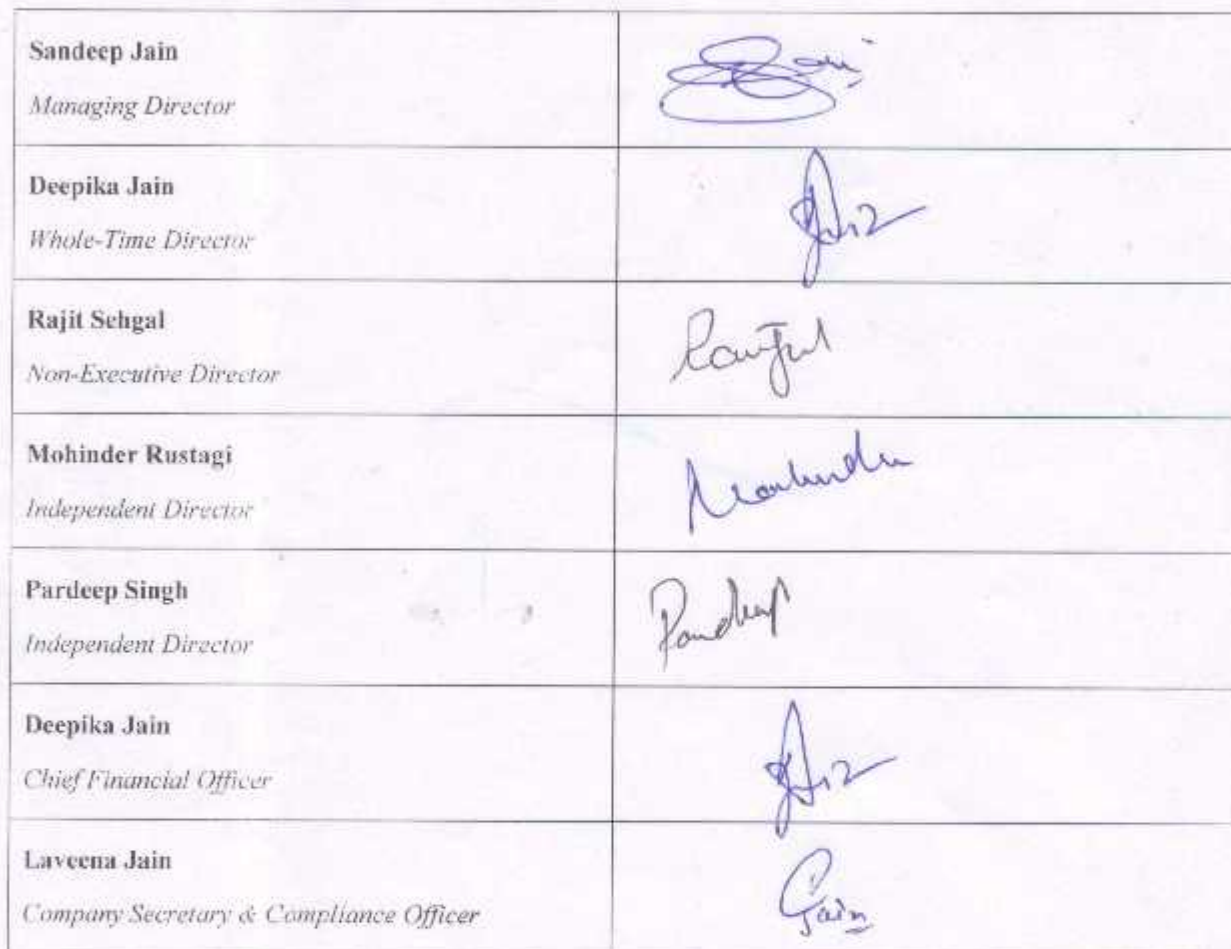 Sandeep Jain
Managing Director
Deepika Jain
Whole-Time Director
Rajit Sehgal
Non-Executive Director
Mohinder Rustagi
Independent Director
Pardeep Singh
Independent Director
Pardeep
Deepika Jain
Chief Financial Officer
Laveena Jain
Company Secretary & Compliance Officer
Jain